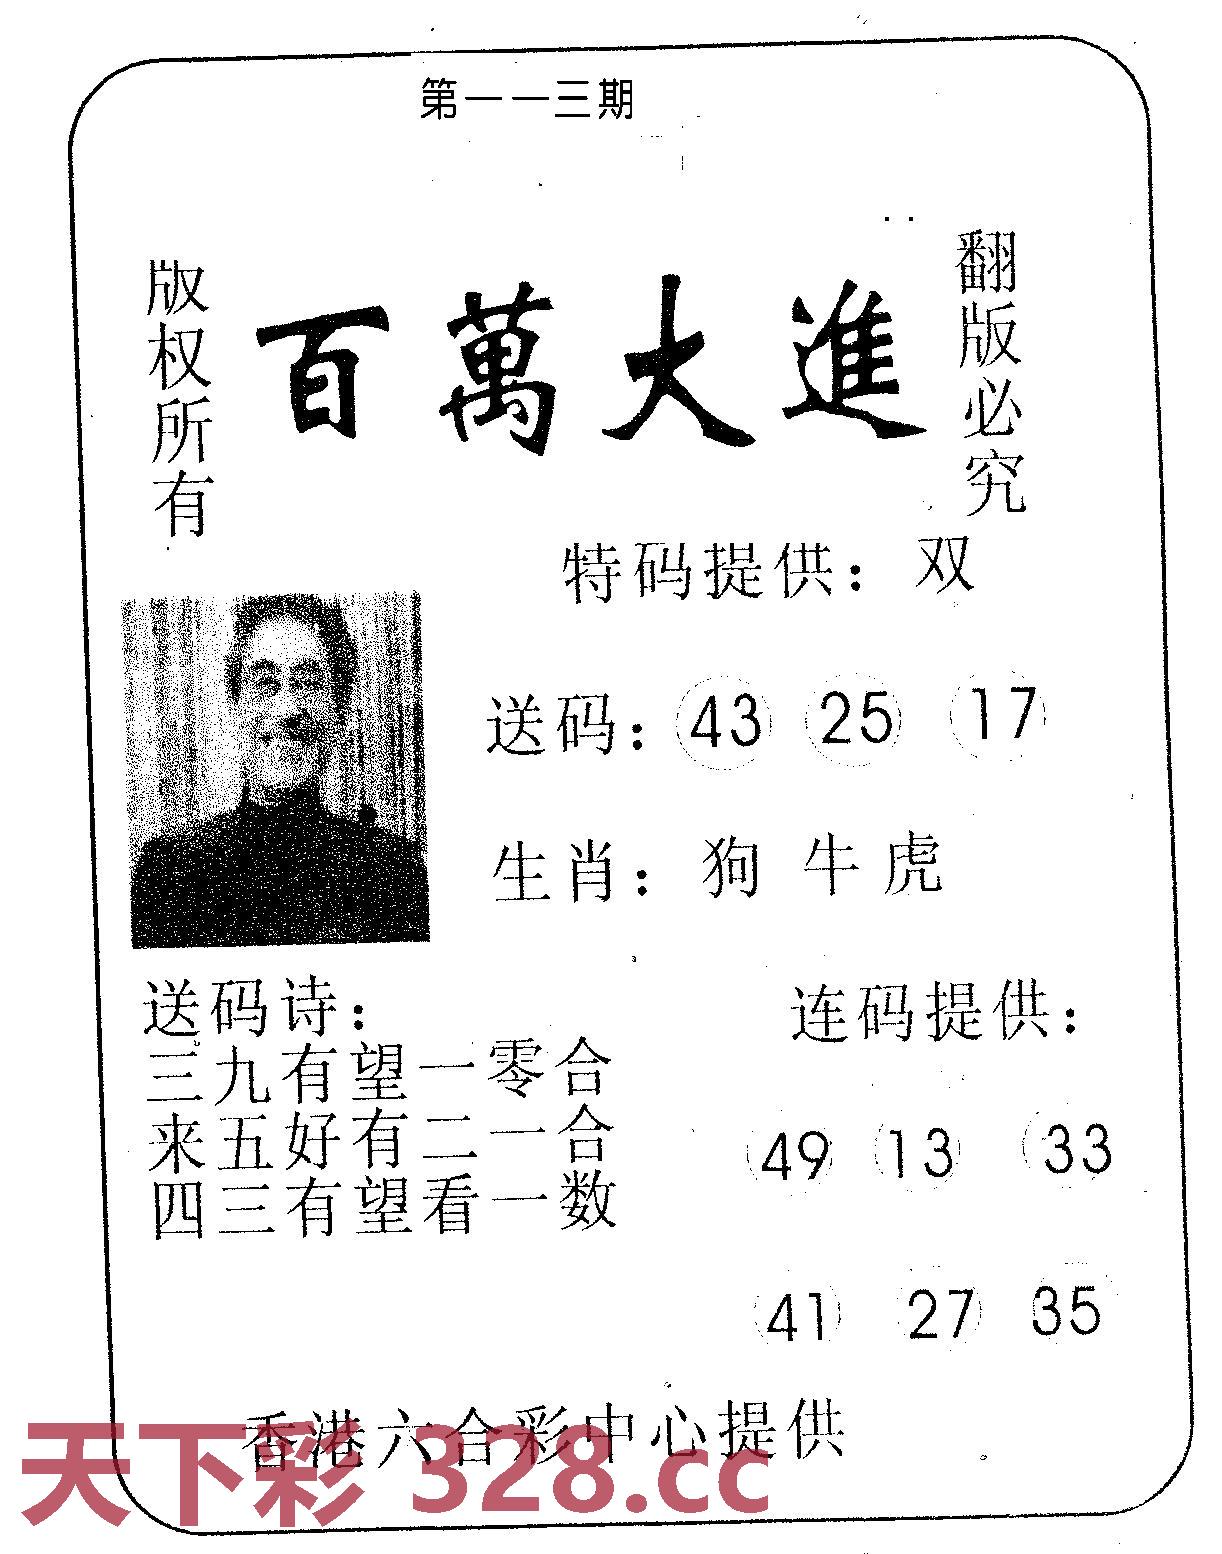 第一一三期
版权所有
百萬大進
翻版必究
特码提供：双
送码：43 25 17
生肖：狗 牛 虎
送码诗：
三九有望一零合
来五好有二一合
四三有望看一数
连码提供：
49 13 33
41 27 35
香港六合彩中心提供
天下彩 328.cc